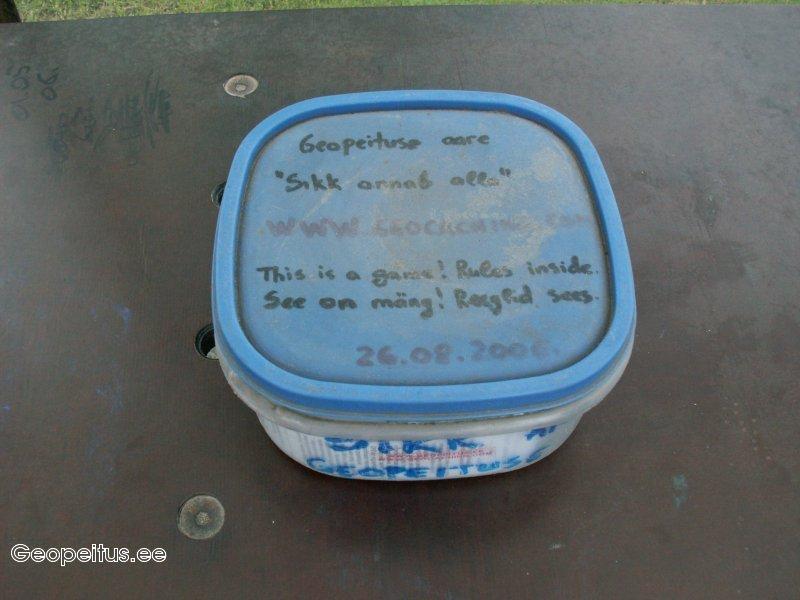 Geopeituse aare
"Sikk annab alla"
WWW.GEOCACHING.COM
This is a game! Rules inside.
See on mäng! Reeglid sees.
26.08.2006.
SIKK
GEOPEITUSE
Geopeitus.ee